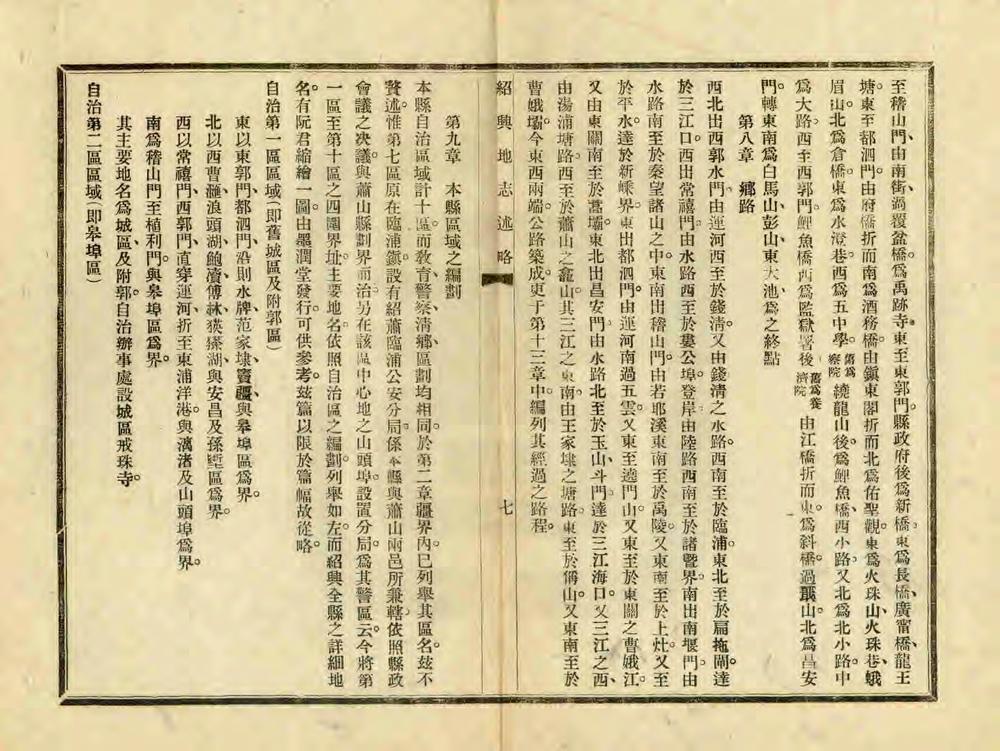 至稽山門、由南街過覆盆橋、爲禹跡寺、東至東郭門、縣政府後爲新橋、東爲長橋、廣甯橋、龍王
塘、東至都泗門、由府橋折而南、爲酒務橋、由鎭東閣折而北、爲佑聖觀、東爲火珠山、火珠巷、蛾
眉山、北爲倉橋、東爲水澄巷、西爲五中學、舊爲察院繞龍山後、爲鯉魚橋、西小路、又北爲北小路、中
爲大路、西至西郭門、鯉魚橋西爲監獄署後、舊爲養濟院由江橋折而東、爲斜橋、過蕺山、北爲昌安
門、轉東南爲白馬山、彭山、東大池、爲之終點
第八章　鄉路
西北出西郭水門、由運河西至於錢淸、又由錢淸之水路、西南至於臨浦、東北至於扁拖閘、達
於三江口、西出常禧門、由水路西至於婁公埠、登岸由陸路西南至於諸暨界、南出南堰門、由
水路南至於秦望諸山之中、東南出稽山門、由若耶溪東南至於禹陵、又東南至於上灶、又至
於平水、達於新嵊界、東出都泗門、由運河南過五雲、又東至遶門山、又東至於東關之曹娥江、
又由東關南至於蒿壩、東北出昌安門、由水路北至於玉山斗門、達於三江海口、又三江之西、
由湯浦塘路、西至於蕭山之龕山、其三江之東南、由王家埭之塘路、東至於偁山、又東南至於
曹娥壩、今東西兩端公路築成、更于第十三章中、編列其經過之路程。
紹興地志述略
七
第九章　本縣區域之編劃
本縣自治區域計十區、而敎育、警察、淸鄉、區劃均相同、於第二章疆界內、已列舉其區名、玆不
贅述、惟第七區原在臨浦鎭設有紹蕭臨浦公安分局、係本縣與蕭山兩邑所兼轄、依照縣政
會議之决議、與蕭山縣劃界而治、另在該區中心地之山頭埠設置分局、爲其警區云、今將第
一區至第十區之四圍界址、主要地名、依照自治區之編劃、列舉如左、而紹興全縣之詳細地
名、有阮君緒繪一圖、由墨潤堂發行、可供參考、玆篇以限於篇幅、故從略。
自治第一區區域（即舊城區及附郭區）
東以東郭門、都泗門、沿則水牌、范家埭、竇疆、與皋埠區爲界。
北以西曹瀝、浪頭湖、鮑瀆、傅林、猰㺄湖、與安昌及孫墅區爲界。
西以常禧門、西郭門、直穿運河、折至東浦洋港、與漓渚及山頭埠爲界。
南爲稽山門、至植利門、與皋埠區爲界。
其主要地名爲城區、及附郭、自治辦事處設城區戒珠寺。
自治第二區區域（即皋埠區）